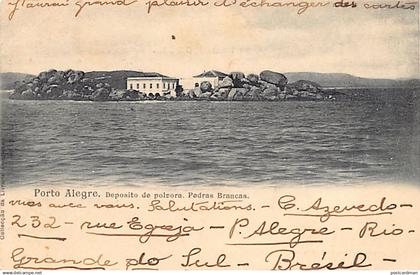 J'aurai grand plaisir d'échanger des cartes
Porto Alegre. Deposito de polvora. Pedras Brancas.
vues avec vous. Salutations. - C. Azevedo -
232 - rue Egreja - P. Alegre - Rio -
Grande do Sul - Brésil -
Collecção da
postcardman